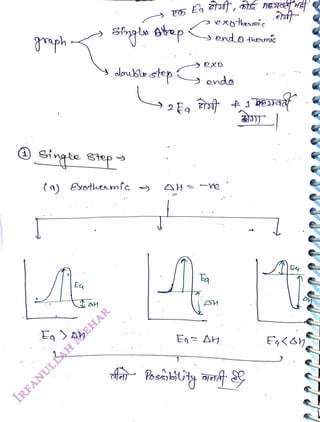 एक Ea होगी, कोई मध्यवर्ती नहीं होगी
graph
Single Step
exothermic
endothermic
double step
exo
endo
2 Ea होगी + 1 मध्यवर्ती होगा
① Single Step →
(a) Exothermic → ΔH = -ve
Ea
ΔH
Ea > ΔH
Ea
ΔH
Ea = ΔH
Ea
ΔH
Ea < ΔH
तीनो Possibility बनती है
IRFANULLAH MEHAR